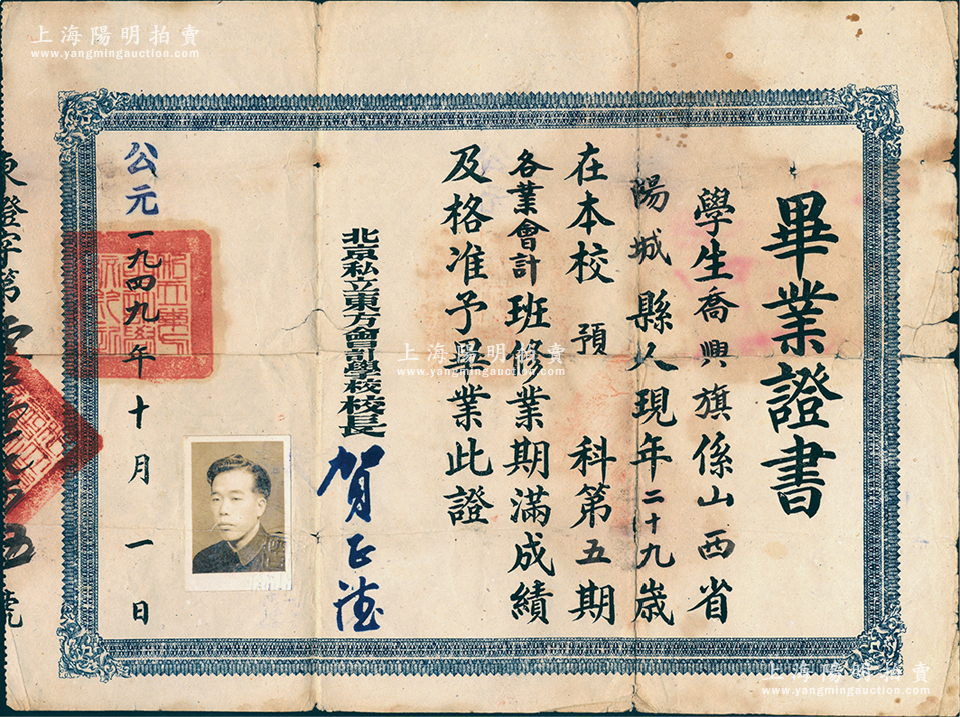 上海陽明拍賣
www.yangmingauction.com
畢業證書
學生喬興旗係山西省
陽城縣人現年二十九歲
在本校預科第五期
各業會計班修業期滿成績
及格准予畢業此證
北京私立東方會計學校校長
賀正德
公元一九四九年十月一日
東證字第
號
上海陽明拍賣
www.yangmingauction.com
上海陽明拍賣
www.yangmingauction.com